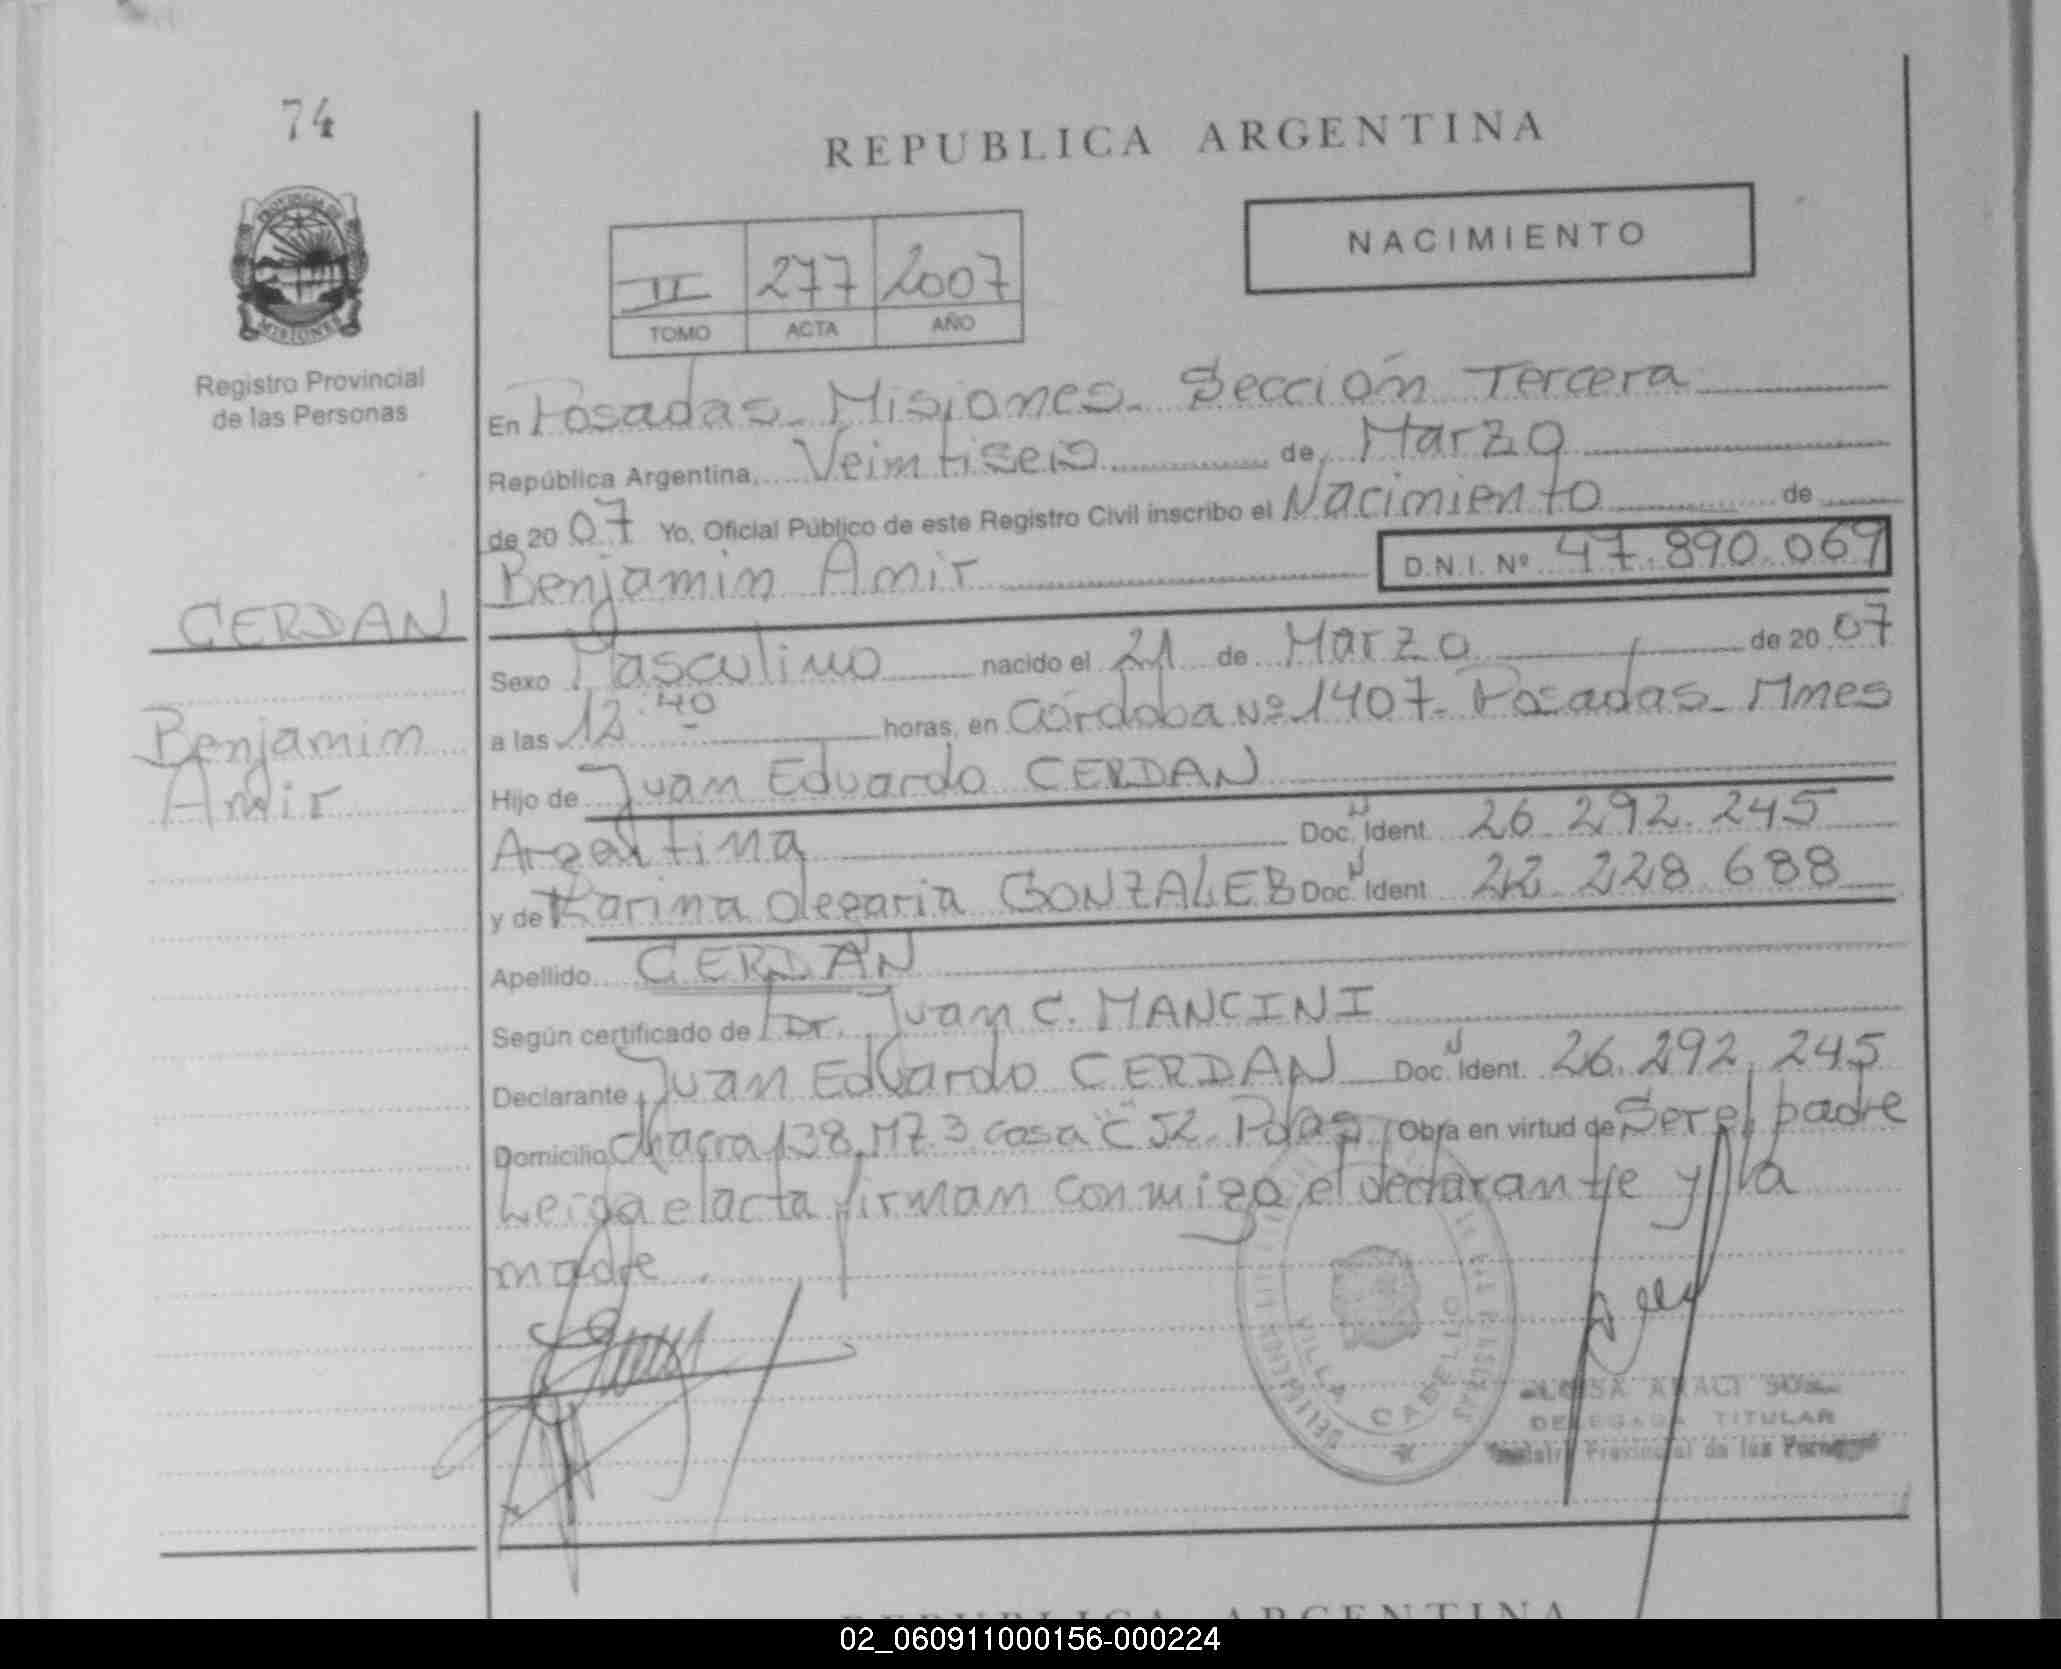 74
REPUBLICA ARGENTINA
PROVINCIA DE
MISIONES
NACIMIENTO
II 277 2007
TOMO ACTA AÑO
Registro Provincial
de las Personas
En Posadas - Misiones - Sección Tercera
República Argentina, Veintiseis de Marzo
de 2007 Yo, Oficial Público de este Registro Civil inscribo el Nacimiento de
Benjamin Amir D.N.I. Nº 47.890.069
CERDAN
Sexo Masculino nacido el 21 de Marzo de 2007
Benjamin
a las 12.40 horas, en Córdoba Nº 1407 - Posadas - Mnes
Amir
Hijo de Juan Eduardo CERDAN
Argentina Doc. Ident. 26.292.245
y de Karina Olegaria GONZALEZ Doc. Ident. 22.228.688
Apellido CERDAN
Según certificado de Dr. Juan C. MANCINI
Declarante Juan Eduardo CERDAN Doc. Ident. 26.292.245
Domicilio Chacra 138 MZ. 3 casa "C" 52 - Pdas Obra en virtud de Ser el padre
Leida el acta firman conmigo el declarante y la
madre.
VILLA CABELLO
DELEGADA TITULAR
Provincial de las
REPUBLICA ARGENTINA
02_060911000156-000224